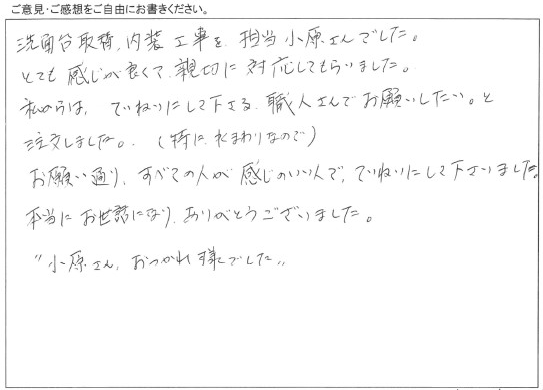 ご意見・ご感想をご自由にお書きください。
洗面台取替、内装工事を、担当小原さんでした。
とても感じが良くて、親切に対応してもらいました。
私からは、ていねいにして下さる職人さんでお願いしたい。と
注文しました。(特に、水まわりなので)
お願い通り、すべての人が感じのいい人で、ていねいにして下さいました。
本当にお世話になり、ありがとうございました。
〃小原さん、おつかれ様でした〃